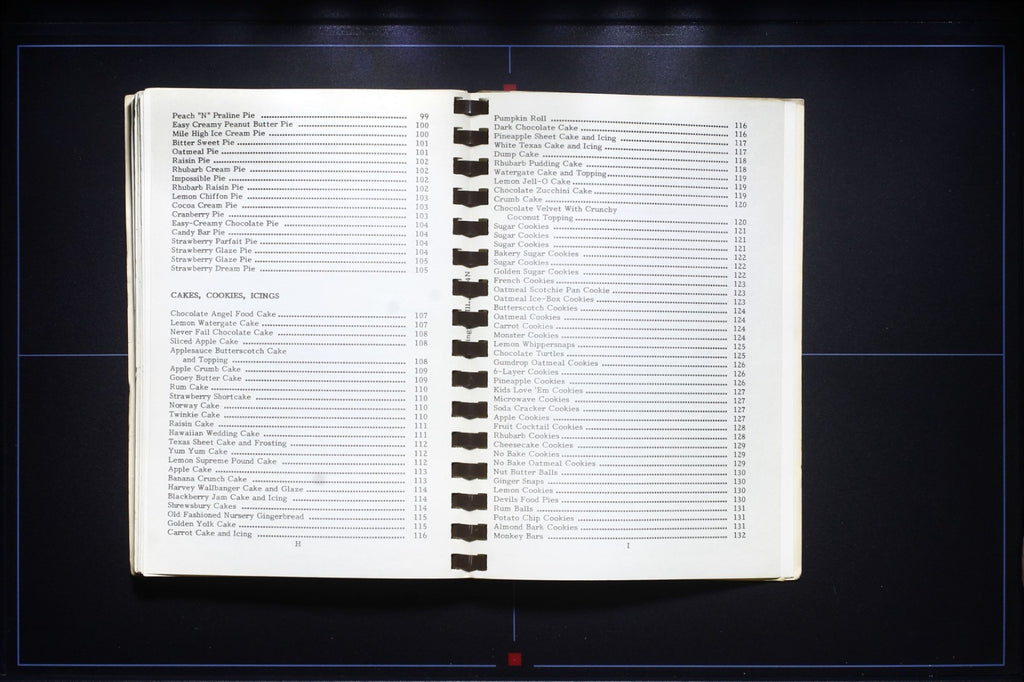 Peach "N" Praline Pie ........ 99
Easy Creamy Peanut Butter Pie ........ 100
Mile High Ice Cream Pie ........ 100
Bitter Sweet Pie ........ 101
Oatmeal Pie ........ 101
Raisin Pie ........ 102
Rhubarb Cream Pie ........ 102
Impossible Pie ........ 102
Rhubarb Raisin Pie ........ 102
Lemon Chiffon Pie ........ 103
Cocoa Cream Pie ........ 103
Cranberry Pie ........ 103
Easy-Creamy Chocolate Pie ........ 104
Candy Bar Pie ........ 104
Strawberry Parfait Pie ........ 104
Strawberry Glaze Pie ........ 104
Strawberry Glaze Pie ........ 105
Strawberry Dream Pie ........ 105
CAKES, COOKIES, ICINGS
Chocolate Angel Food Cake ........ 107
Lemon Watergate Cake ........ 107
Never Fail Chocolate Cake ........ 108
Sliced Apple Cake ........ 108
Applesauce Butterscotch Cake
and Topping ........ 108
Apple Crumb Cake ........ 109
Gooey Butter Cake ........ 109
Rum Cake ........ 110
Strawberry Shortcake ........ 110
Norway Cake ........ 110
Twinkie Cake ........ 110
Raisin Cake ........ 111
Hawaiian Wedding Cake ........ 111
Texas Sheet Cake and Frosting ........ 112
Yum Yum Cake ........ 112
Lemon Supreme Pound Cake ........ 112
Apple Cake ........ 113
Banana Crunch Cake ........ 113
Harvey Wallbanger Cake and Glaze ........ 114
Blackberry Jam Cake and Icing ........ 114
Shrewsbury Cakes ........ 114
Old Fashioned Nursery Gingerbread ........ 115
Golden Yolk Cake ........ 115
Carrot Cake and Icing ........ 116
H
Pumpkin Roll ........ 116
Dark Chocolate Cake ........ 116
Pineapple Sheet Cake and Icing ........ 117
White Texas Cake and Icing ........ 117
Dump Cake ........ 118
Rhubarb Pudding Cake ........ 118
Watergate Cake and Topping ........ 119
Lemon Jell-O Cake ........ 119
Chocolate Zucchini Cake ........ 119
Crumb Cake ........ 120
Chocolate Velvet With Crunchy
Coconut Topping ........ 120
Sugar Cookies ........ 121
Sugar Cookies ........ 121
Sugar Cookies ........ 121
Bakery Sugar Cookies ........ 122
Sugar Cookies ........ 122
Golden Sugar Cookies ........ 122
French Cookies ........ 123
Oatmeal Scotchie Pan Cookie ........ 123
Oatmeal Ice-Box Cookies ........ 123
Butterscotch Cookies ........ 124
Oatmeal Cookies ........ 124
Carrot Cookies ........ 124
Monster Cookies ........ 124
Lemon Whippersnaps ........ 125
Chocolate Turtles ........ 125
Gumdrop Oatmeal Cookies ........ 126
6-Layer Cookies ........ 126
Pineapple Cookies ........ 126
Kids Love 'Em Cookies ........ 127
Microwave Cookies ........ 127
Soda Cracker Cookies ........ 127
Apple Cookies ........ 127
Fruit Cocktail Cookies ........ 128
Rhubarb Cookies ........ 128
Cheesecake Cookies ........ 129
No Bake Cookies ........ 129
No Bake Oatmeal Cookies ........ 129
Nut Butter Balls ........ 130
Ginger Snaps ........ 130
Lemon Cookies ........ 130
Devils Food Pies ........ 130
Rum Balls ........ 131
Potato Chip Cookies ........ 131
Almond Bark Cookies ........ 131
Monkey Bars ........ 132
I